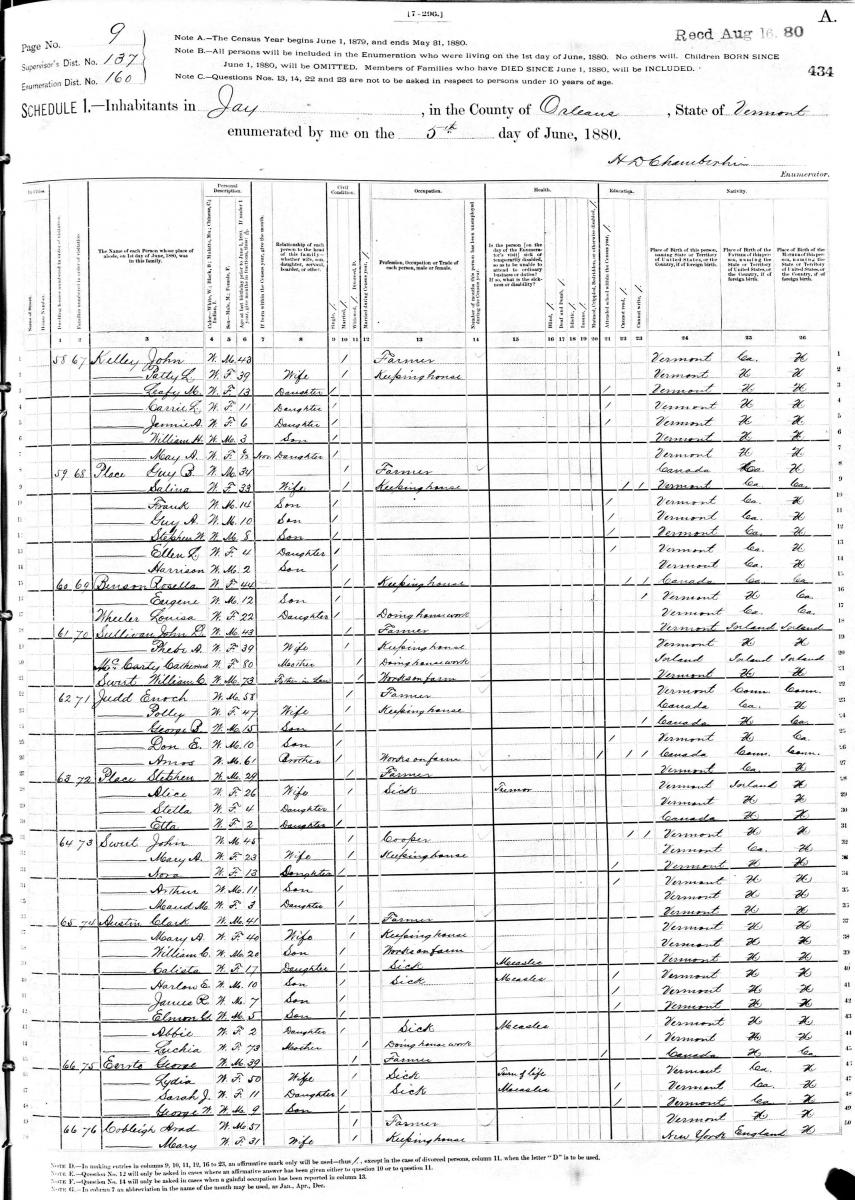 [7-296.]
A.
Page No. 9
Supervisor's Dist. No. 137
Enumeration Dist. No. 160
Note A.—The Census Year begins June 1, 1879, and ends May 31, 1880.
Note B.—All persons will be included in the Enumeration who were living on the 1st day of June, 1880. No others will. Children BORN SINCE
June 1, 1880, will be OMITTED. Members of Families who have DIED SINCE June 1, 1880, will be INCLUDED.
Note C.—Questions Nos. 13, 14, 22 and 23 are not to be asked in respect to persons under 10 years of age.
Recd Aug 16. 80
434
SCHEDULE 1.—Inhabitants in Jay, in the County of Orleans, State of Vermont
enumerated by me on the 5th day of June, 1880.
H D Chamberlin
Enumerator.
Personal Description. Civil Condition. Occupation. Health. Education. Nativity.
The Name of each Person whose place of abode, on 1st day of June, 1880, was in this family.
Relationship of each person to the head of this family—whether wife, son, daughter, servant, boarder, or other.
Profession, Occupation or Trade of each person, male or female.
1 2 3 4 5 6 7 8 9 10 11 12 13 14 15 16 17 18 19 20 21 22 23 24 25 26
1 58 67 Kelley John W. M. 43 / Farmer Vermont Ca. H
2 Patty L W. F. 39 Wife / Keeping house Vermont H H
3 Leafy M. W. F. 13 Daughter / / Vermont H H
4 Carrie L. W. F. 11 Daughter / / Vermont H H
5 Jennie A. W. F. 6 Daughter / / Vermont H H
6 William H. W. M. 3 Son / Vermont H H
7 May A. W. F. Nov Daughter / Vermont H H
8 59 68 Place Guy B. W. M. 34 / Farmer Canada Ca H
9 Salina W. F. 33 Wife / Keeping house / / Vermont Ca Ca.
10 Frank W. M. 14 Son / / Vermont Ca. H
11 Guy A. W. M. 10 Son / / Vermont Ca. H
12 Stephen W. W. M. 8 Son / / Vermont Ca. H
13 Ellen L W. F. 4 Daughter / Vermont Ca. H
14 Harrison W. M. 2 Son / Vermont Ca. H
15 60 69 Binson Rosella W. F. 44 / Keeping house / / Canada Ca Ca.
16 Eugene W. M. 12 Son / / Vermont H Ca.
17 Wheeler Louisa W. F. 22 Daughter / Doing house work Vermont Ca. Ca.
18 61 70 Sullivan John W. M. 43 / Farmer Vermont Ireland Ireland
19 Phebe A. W. F. 39 Wife / Keeping house Vermont H H
20 McCarty Catherine W. F. 80 Mother / Doing house work Ireland Ireland Ireland
21 Swert William C. W. M. 73 Father in Law / Works on farm Vermont H H
22 62 71 Judd Enoch W. M. 58 / Farmer Vermont Conn. Conn.
23 Polly W. F. 47 Wife / Keeping house Canada Ca. H
24 George B. W. M. 15 Son / / Canada H Ca.
25 Don E. W. M. 10 Son / / Vermont H Ca.
26 Amos W. M. 61 Brother / Works on farm / / Canada Conn. Conn.
27 63 72 Place Stephen W. M. 29 / Farmer Vermont Ca. H
28 Alice W. F. 26 Wife / Sick Tumor Vermont Ireland H
29 Stella W. F. 4 Daughter / Vermont H H
30 Etta W. F. 2 Daughter / Canada H H
31 64 73 Swert John W. M. 45 / Cooper / / Vermont H H
32 Mary A. W. F. 23 Wife / Keeping house Vermont Ca. H
33 Nora W. F. 13 Daughter / / Vermont H H
34 Arthur W. M. 11 Son / / Vermont H H
35 Maud M. W. F. 3 Daughter / Vermont H H
36 65 74 Austin Clark W. M. 41 / Farmer Vermont H H
37 Mary A. W. F. 40 Wife / Keeping house Vermont H H
38 William C. W. M. 20 Son / Works on farm Vermont H H
39 Calista W. F. 17 Daughter / Sick Measles Vermont H H
40 Harlow E. W. M. 10 Son / Sick Measles / Vermont H H
41 James R. W. M. 7 Son / / Vermont H H
42 W. M. 5 Son / / Vermont H H
43 Abbie W. F. 2 Daughter / Sick Measles Vermont H H
44 Luchia W. F. 73 Mother / Doing house work / Vermont H H
45 66 75 George W. M. 39 / Farmer / Canada H Ca
46 Lydia W. F. 50 Wife / Sick Turn of life Vermont Ca. H
47 Sarah J. W. F. 11 Daughter / Sick Measles / Vermont Ca. H
48 George W. W. M. 9 Son / / Vermont Ca H
49 66 76 Cobleigh W. M. 57 / Farmer Vermont H H
50 Mary W. F. 31 Wife / Keeping house New York England H
Note D.—In making entries in columns 9, 10, 11, 12, 16 to 23, an affirmative mark only will be used—thus /, except in the case of divorced persons, column 11, when the letter "D" is to be used.
Note E.—Question No. 12 will only be asked in cases where an affirmative answer has been given either to question 10 or to question 11.
Note F.—Question No. 14 will only be asked in cases when a gainful occupation has been reported in column 13.
Note G.—In column 7 an abbreviation in the name of the month may be used, as Jan., Apr., Dec.